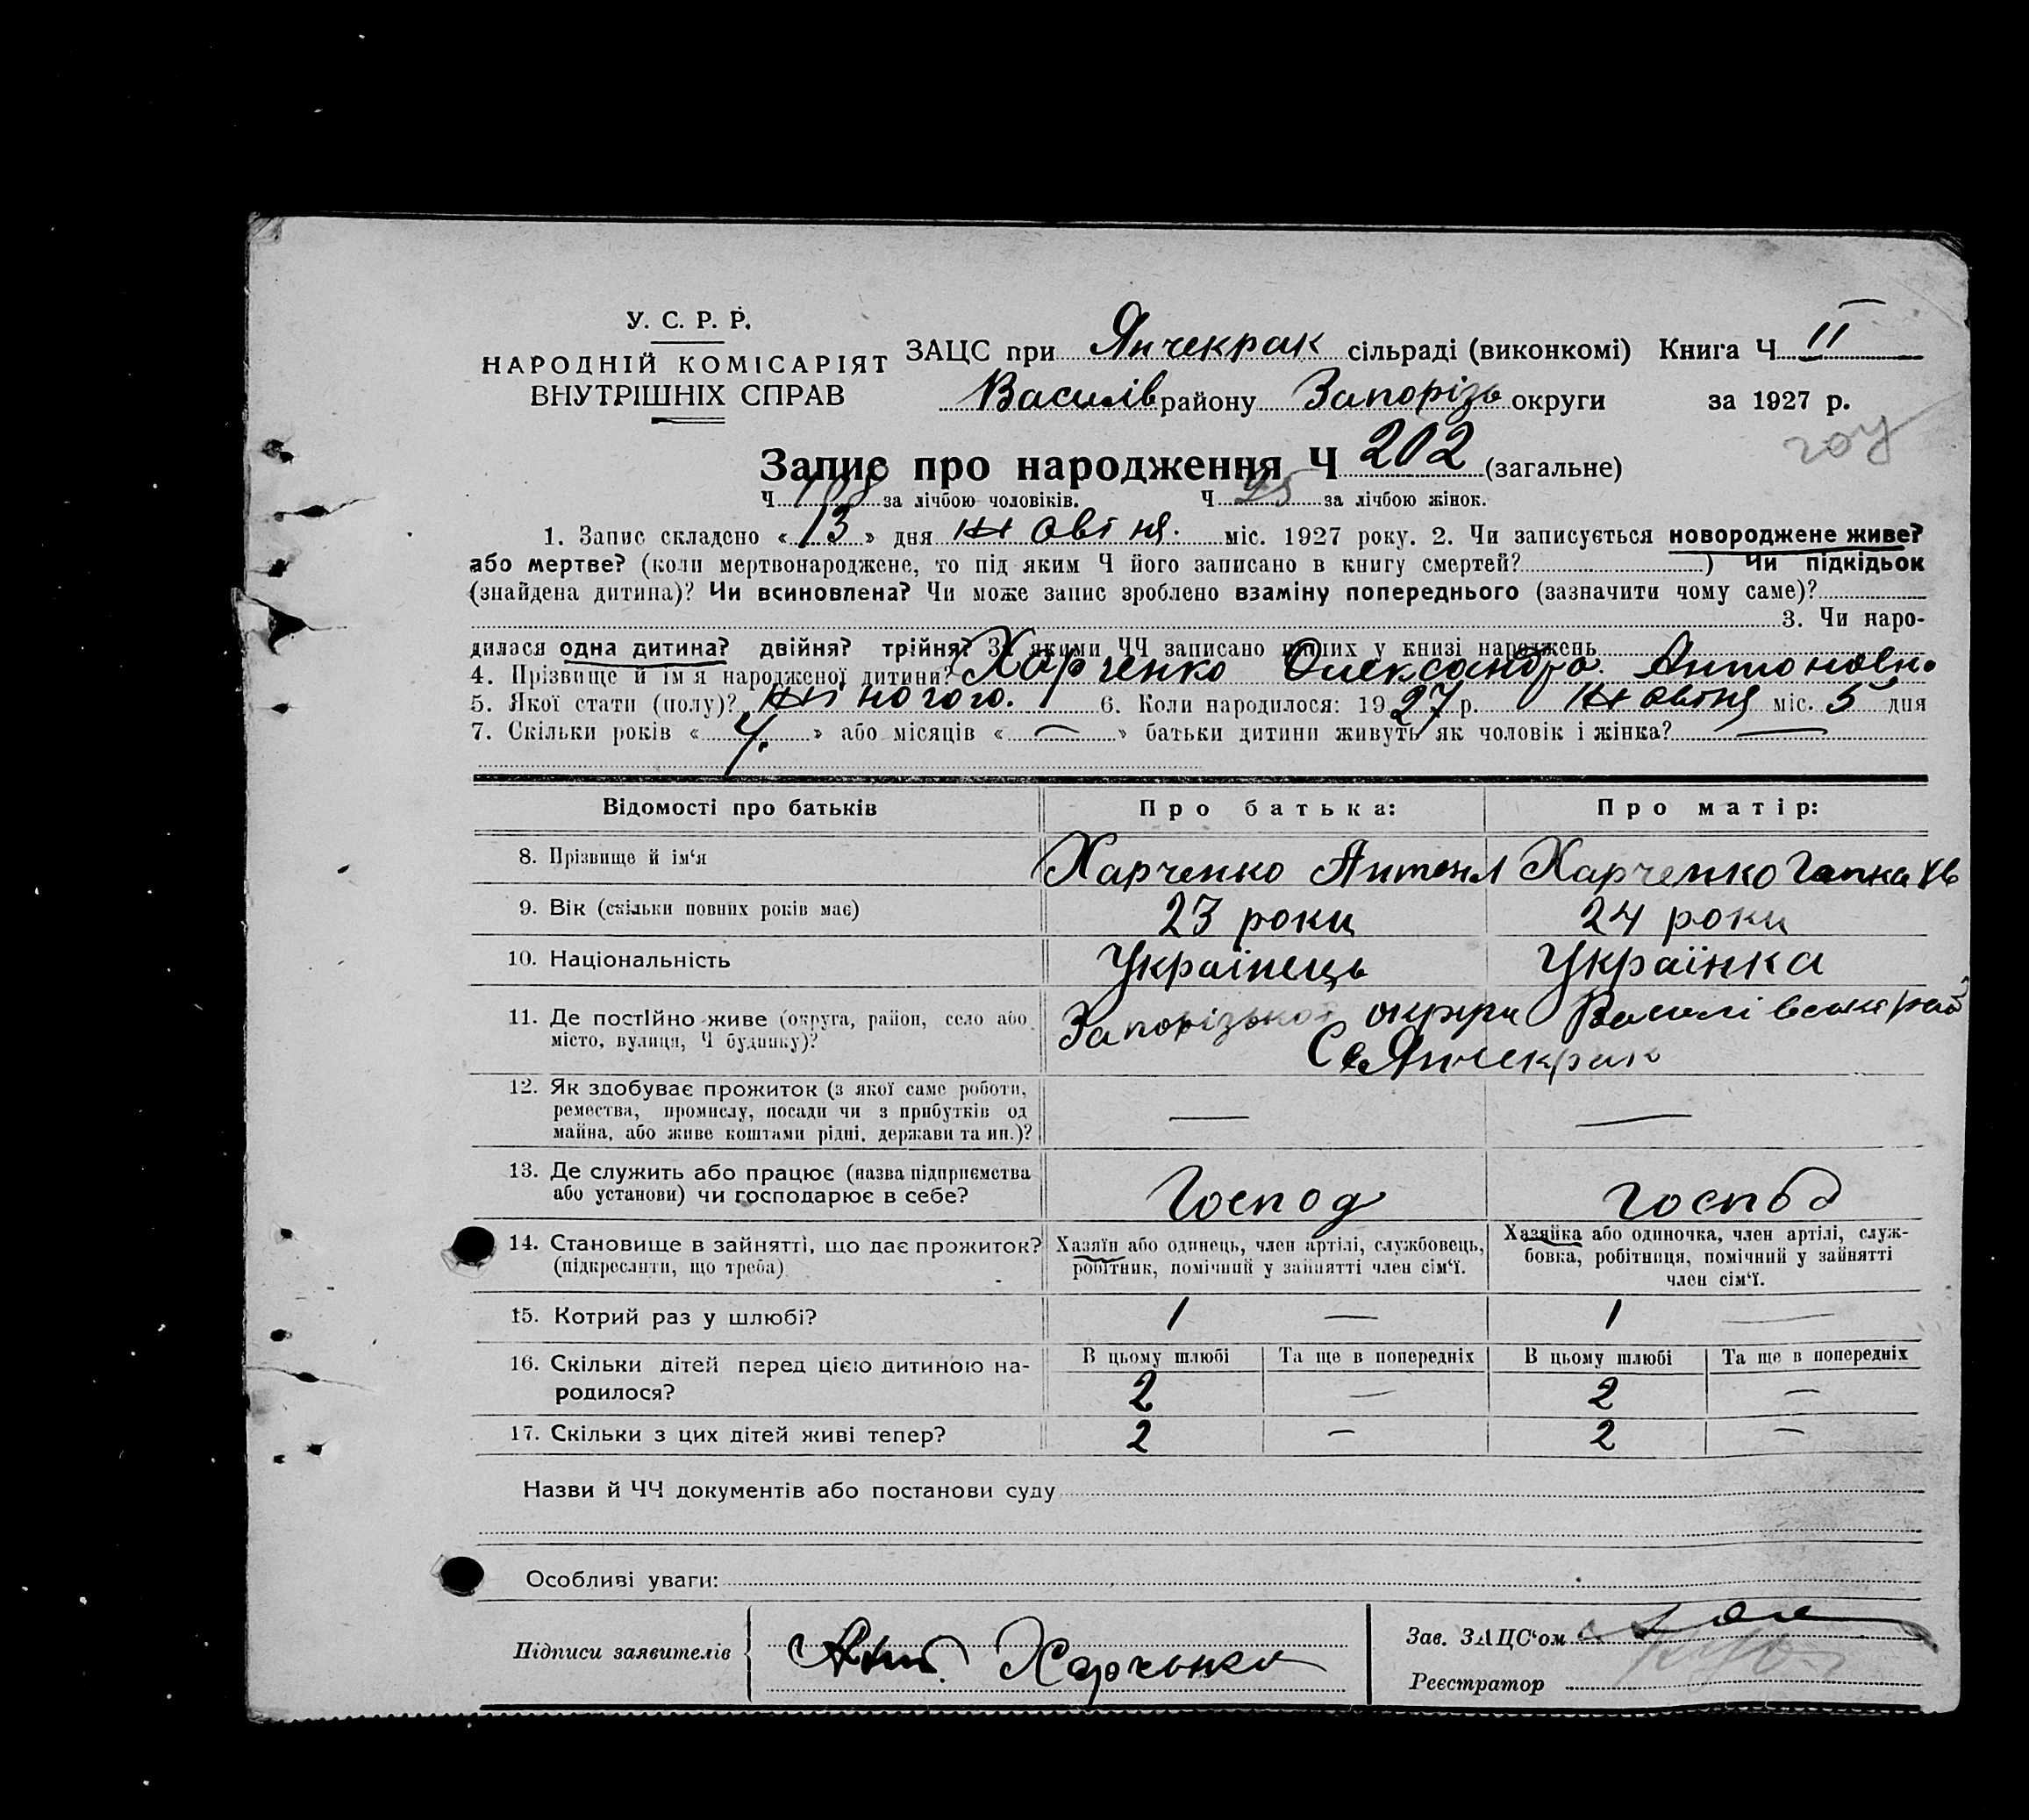 У. С. Р. Р.
НАРОДНІЙ КОМІСАРІЯТ
ВНУТРІШНІХ СПРАВ
ЗАЦС при Янчекрак сільраді (виконкомі) Книга Ч II
Василів району Запорізь округи за 1927 р.
Запис про народження Ч 202 (загальне)
Ч 108 за лічбою чоловіків. Ч за лічбою жінок.
1. Запис складено « 13 » дня жовтня міс. 1927 року. 2. Чи записується новороджене живе?
або мертве? (коли мертвонароджене, то під яким Ч його записано в книгу смертей? ) Чи підкідьок
(знайдена дитина)? Чи всиновлена? Чи може запис зроблено взаміну попереднього (зазначити чому саме)?
3. Чи наро-
дилася одна дитина? двійня? трійня? За якими ЧЧ записано инших у книзі народжень
4. Прізвище й ім'я народженої дитини? Харченко Олександра Антоновн.
5. Якої стати (полу)? жіночого. 6. Коли народилося: 1927 р. жовтня міс. 5 дня
7. Скільки років « 4. » або місяців « — » батьки дитини живуть як чоловік і жінка? —
Відомості про батьків Про батька: Про матір:
8. Прізвище й ім'я Харченко Антон Харченко Гапка
9. Вік (скільки повних років має) 23 роки 24 роки
10. Національність Українець Українка
11. Де постійно живе (округа, район, село або Запорізької округи Василівськ рай
місто, вулиця, Ч будинку)? Янчекрак
12. Як здобуває прожиток (з якої саме роботи,
ремества, промислу, посади чи з прибутків од — —
майна, або живе коштами рідні, держави та ин.)?
13. Де служить або працює (назва підприємства
або установи) чи господарює в себе? Господ господ
14. Становище в зайнятті, що дає прожиток? Хазяїн або одинець, член артілі, службовець, Хазяйка або одиночка, член артілі, служ-
(підкреслити, що треба) робітник, помічний у зайнятті член сім'ї. бовка, робітниця, помічний у зайнятті
член сім'ї.
15. Котрий раз у шлюбі? 1 — 1 —
16. Скільки дітей перед цією дитиною на- В цьому шлюбі Та ще в попередніх В цьому шлюбі Та ще в попередніх
родилося? 2 — 2 —
17. Скільки з цих дітей живі тепер? 2 — 2 —
Назви й ЧЧ документів або постанови суду
Особливі уваги:
Підписи заявителів Ант. Харченко
Зав. ЗАЦС'ом
Реєстратор